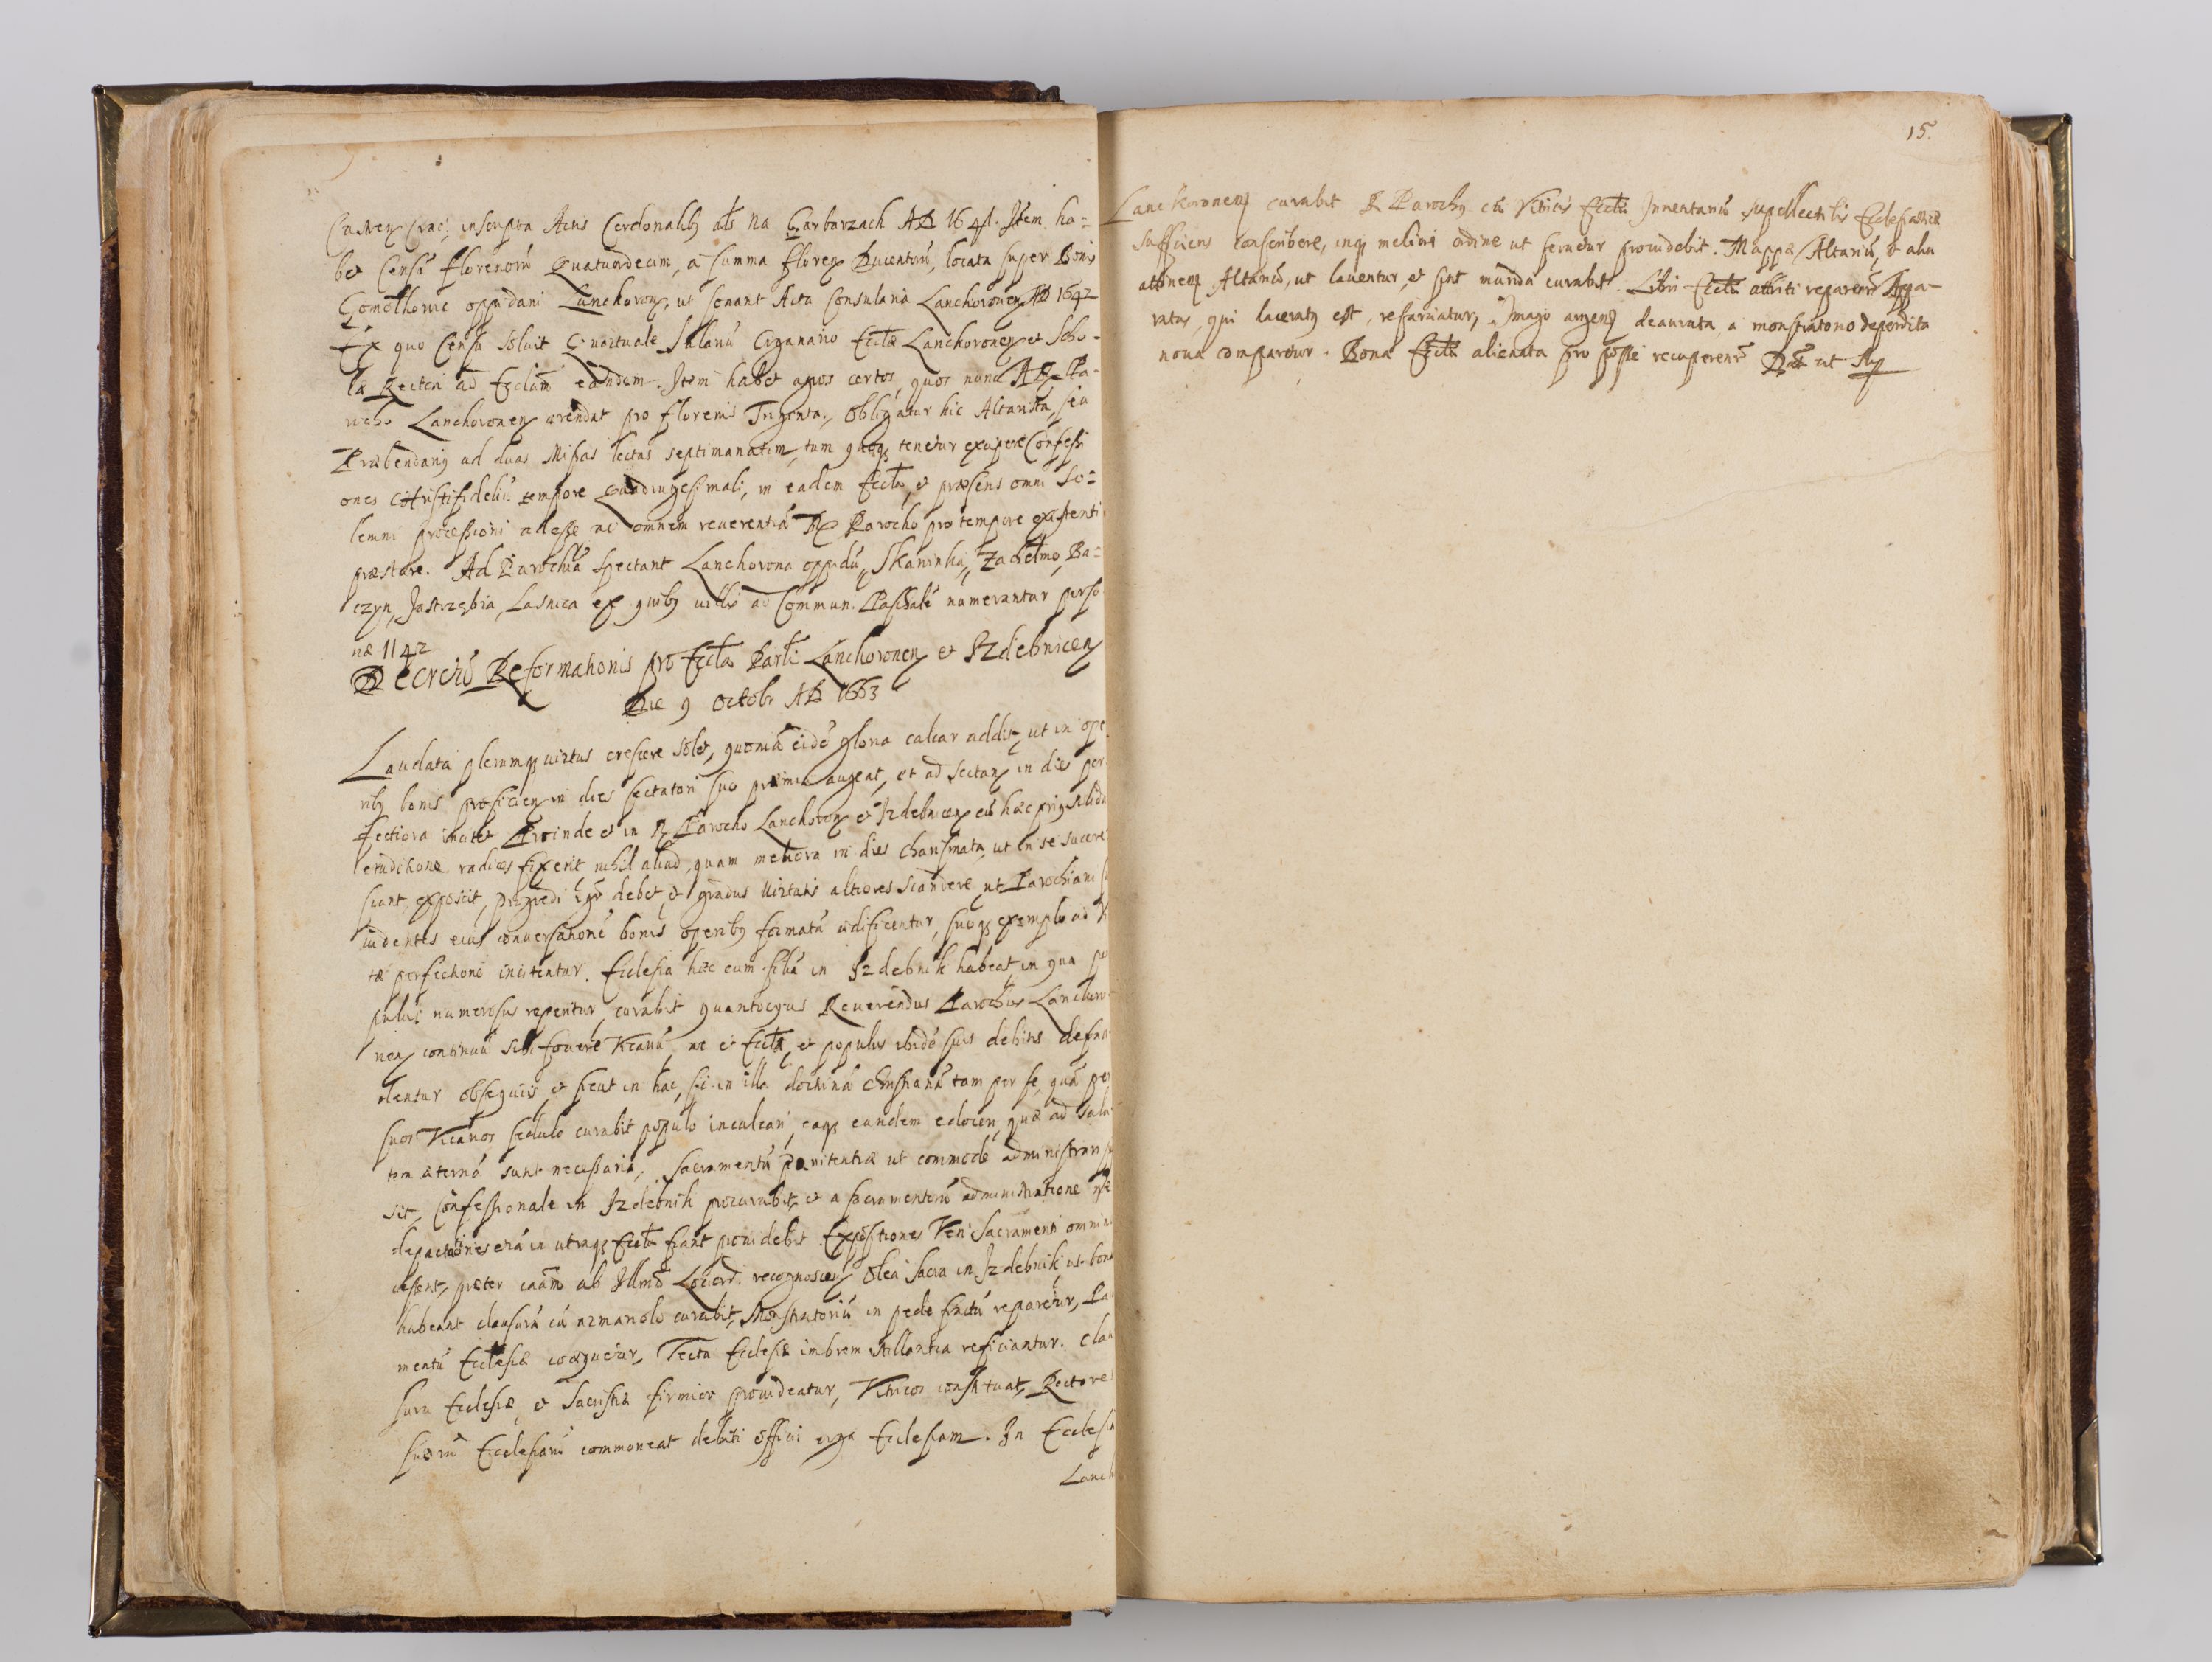 Casimiren Crac: inscripta Actis Cerdonalib9 als na Garbarzach AD 1641. Item ha=
bet Censū florenorū Quatuordecim, a summa floren Ducentorū, locata super Bonis
Gomolhowic oppidani Lanchoron, ut sonant Acta Consularia Lanchoronen AD 1642
Ex quo Censu soluit Quartuale Salariū Organario Eccłæ Lanchoronen et Scho-
læ Rectori ad Eccłam eandem. Item habet agros certos, quos nunc R Pa-
rocho Lanchoronen arendat pro florenis Triginta. Obligatur hic Altarista, seu
Præbendari9 ad duas Missas lectas septimanatim, tum tenetur excipere Confessi
ones Christifideliū tempore Quadragesimali, in eadem Eccła, et præsens omni So=
lemni processioni adesse ac omnem reuerentiā R Parocho pro tempore existenti
præstare. Ad Parochiā spectant Lanchorona oppidū, Skawinki, Zachełmo, Ba=
czyn, Jastrzębia, Lasnica ex quib9 uillis ad Commun. Paschalē numerantur perso
næ 1142
Decretū Reformationis pro Eccła Parłi Lanchoronen et Izdebnicen
Die 9 Octobr AD 1663
Laudata plerumq3 uirtus crescere solet, quoniā eidē gloria calcar addit, ut in ope
rib9 bonis proficien in dies sectatori suo præmia augeat, et ad sectan in dies per
fectiora incitet Proinde et in R Parocho Lanchoron et Izdebnicen cū hæc pri9 solida
eruditione radices fixerit nihil aliud, quam meliora in dies charismata, ut in se sucere
scant exposcit, progredi igr debet, et gradus uirtutis altiores scandere ut Parochiani
uidentes eius conuersationē bonis operib9 formatā ædificentur, suoq3 exemplo ad
tæ perfectionē incitentur. Ecclesia hæc cum filiā in Izdebnik habeat, in qua po
pulus numerosus reperitur, curabit quantocyus Reuerendus Parochus Lanchoro
nen continuū sibi fouere Vicariū, ne et Eccła, et populus ibidē suis debitis defrau
dentur obsequiis, et sicut in hac, sic in illa doctrinā Christianā tam per se, quā per
suos Vicarios sedulo curabit populo inculcari, eaq3 eundem edoceri, quæ ad salu
tem æternā sunt necessaria, Sacramentū Pænitentiæ ut commode administrari
sit, Confessionale in Izdebnik procurabit, et a sacramentorū administratione ne
depactationes in utraq3 Eccła fiant prouidebit Expositiones Ven: Sacramenti omnin
cessent, præter caām ab Illmo Loci recognoscen Olea Sacra in Izdebnik ut bona
habeant clausurā curabit, Monstratoriū in pede fractū reparetur, Pa
mentū Ecclesiæ coæquetur, Tecta Ecclesiæ imbrem stillantia reficiantur. Clau
sura Ecclesiæ, et Sacristiæ firmior prouideatur, Vitricos constituat, Rectore
suorū Ecclesiarū commoneat debiti officii erga Ecclesiam. In Ecclesia
Lanch
15.
Lanckoronen curabit R Paroch9 cū Vitricis Eccłæ Inuentariū supellectilis Ecclesiasticæ
sufficiens conscribere, inq3 meliori ordine ut seruetur prouidebit. Mappæ Altariū, et alia
attinen Altariū, ut lauentur, et sint munda curabit. Libri Eccłæ attriti reparentr Appa-
ratus, qui lacerat9 est, refarciatur, Imago argen deaurata a monstratorio deperdita
noua comparetur. Bona Eccłæ alienata pro posse recuperentr Dat ut Sup